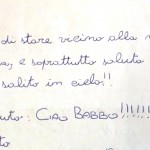 di stare vicino alla
, e soprattutto saluto
salito in cielo!!
: CIAO BABBO!!!!!!